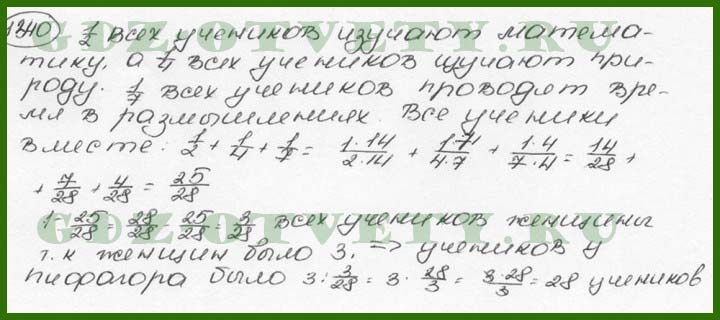 1240 1/2 всех учеников изучают матема-
тику, а 1/4 всех учеников изучают при-
роду. 1/7 всех учеников проводят вре-
мя в размышлениях. Все ученики
вместе: 1/2 + 1/4 + 1/7 = 1·14/2·14 + 1·7/4·7 + 1·4/7·4 = 14/28 +
+ 7/28 + 4/28 = 25/28
1 - 25/28 = 28/28 - 25/28 = 3/28 всех учеников женщины
т.к женщин было 3. => учеников у
пифагора было 3 : 3/28 = 3 · 28/3 = 3·28/3 = 28 учеников
GDZ-OTVETY.RU
GDZ-OTVETY.RU